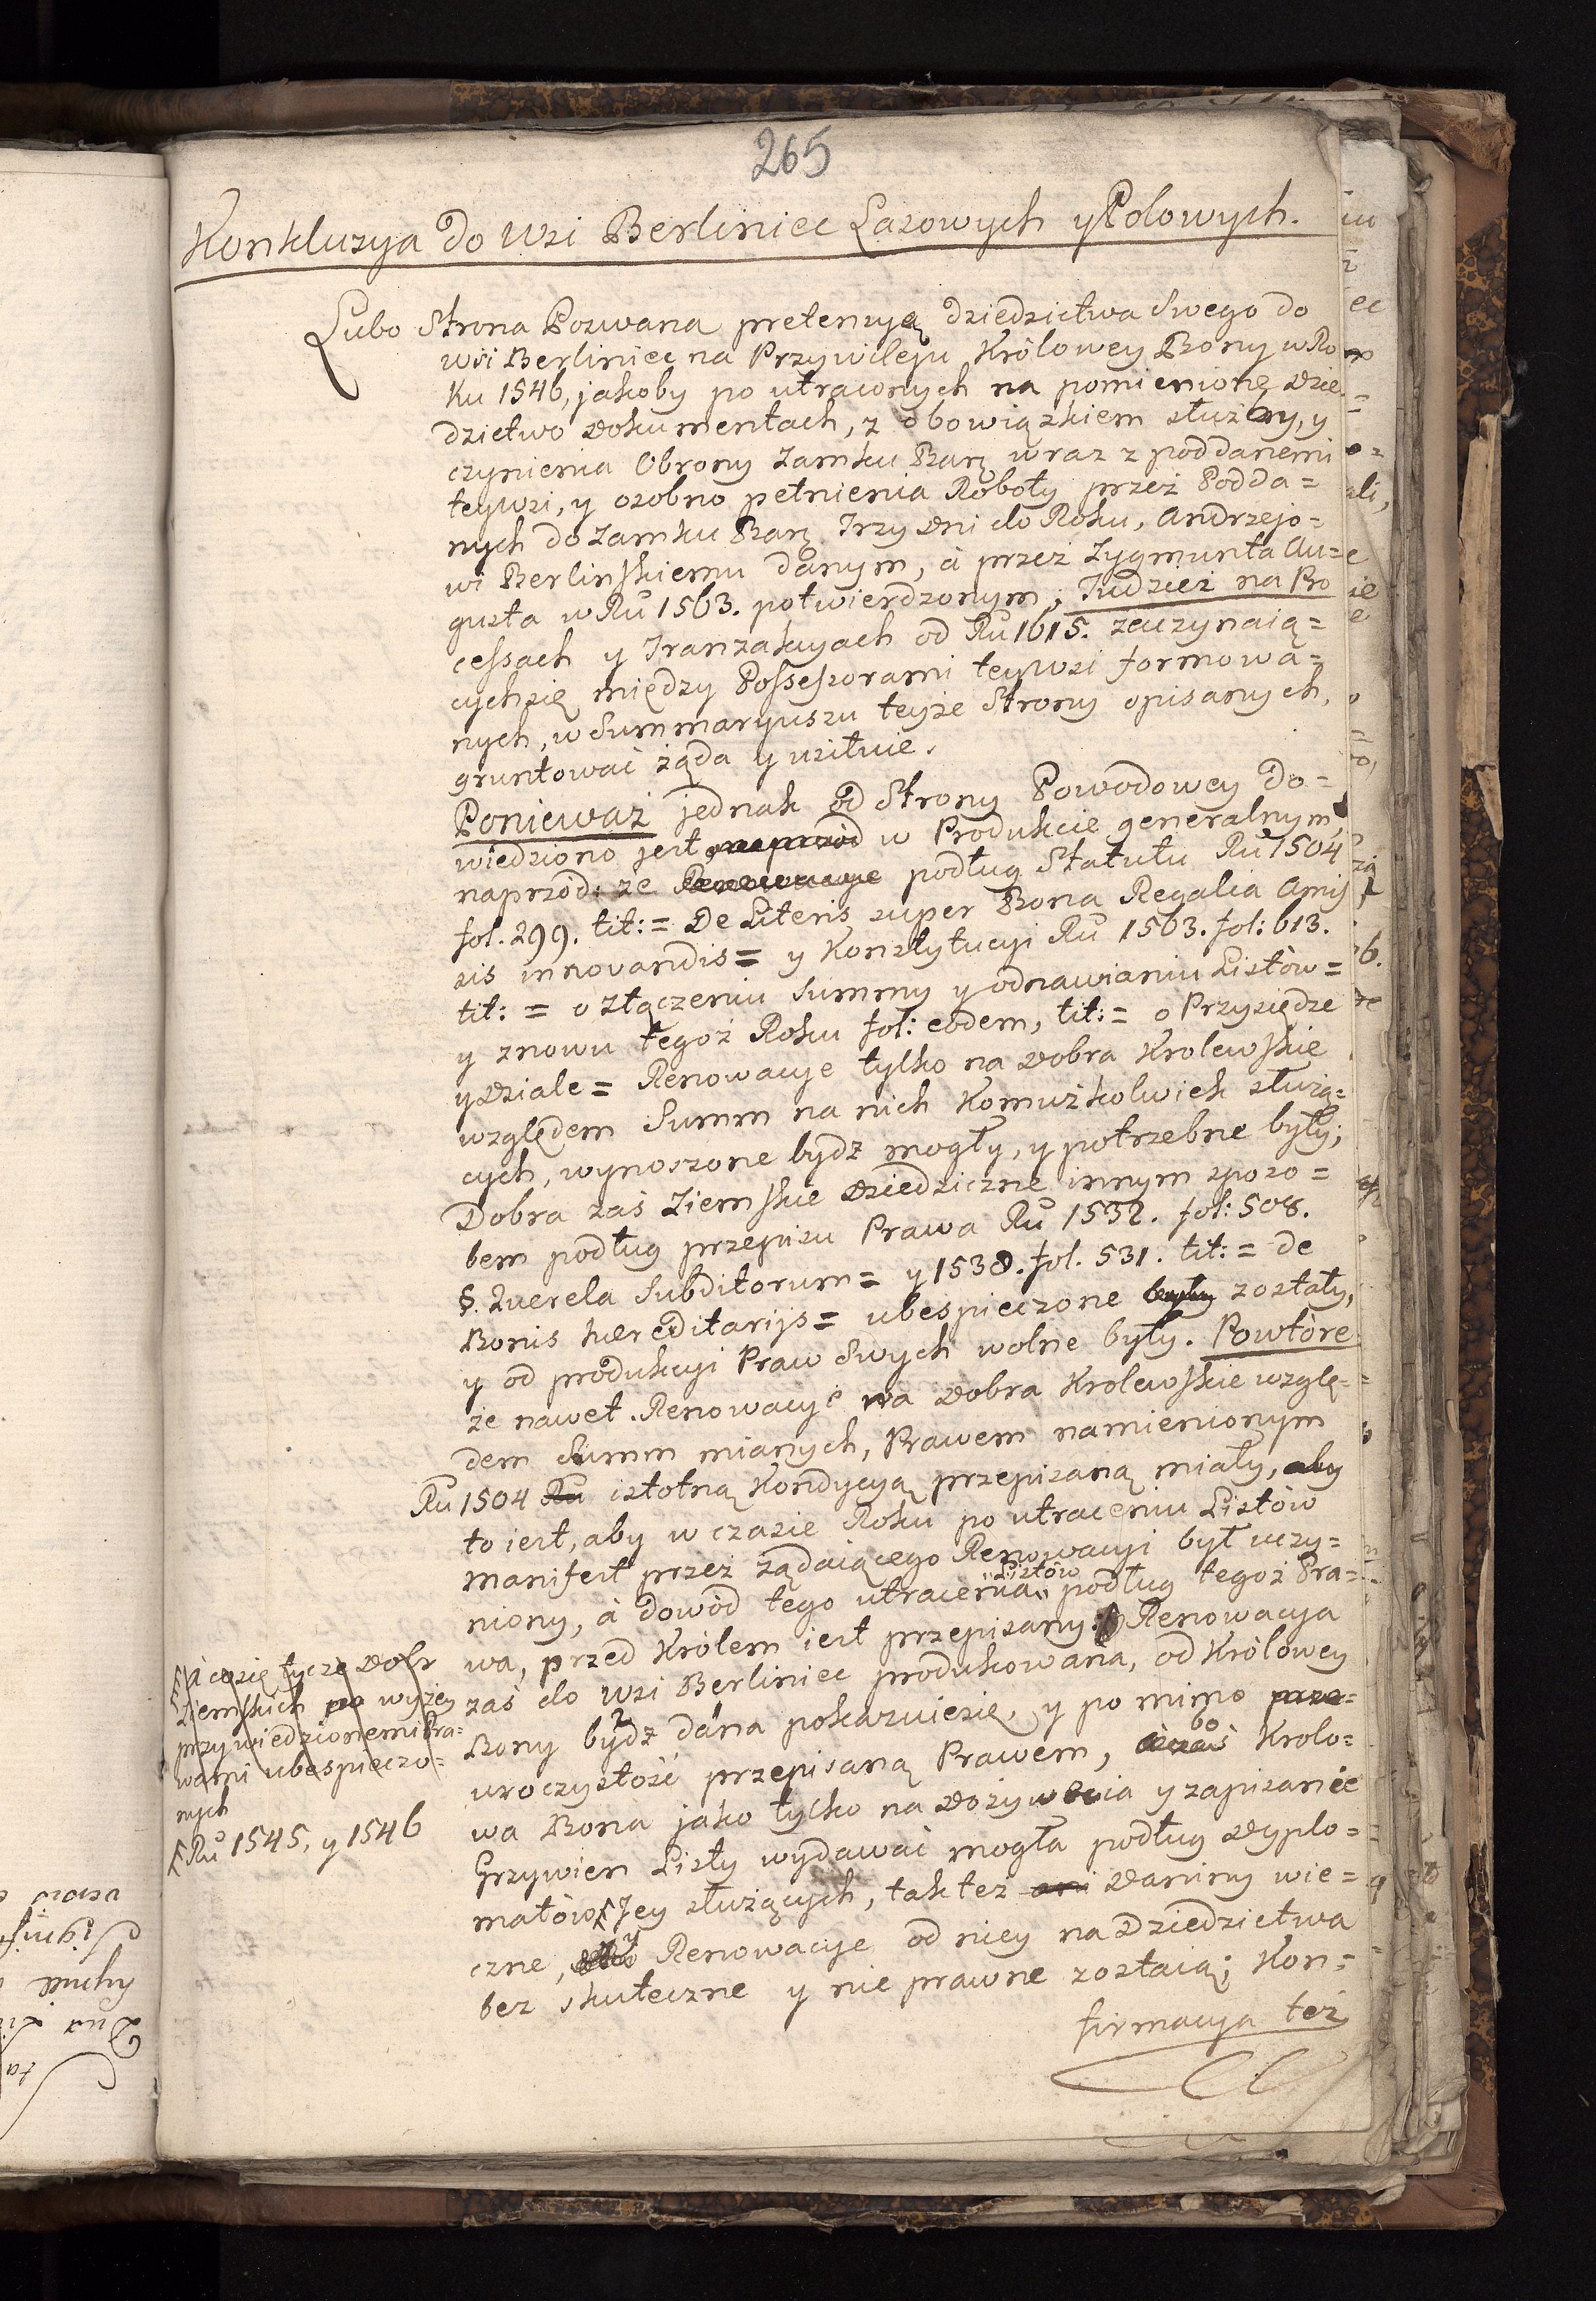 265
Konkluzya do Wsi Berliniec Lasowych y Polowych.
Lubo Strona Pozwana pretensyą dziedzictwa Swego do
wsi Berliniec na Przywileju Królowey Bony w Ro
ku 1546, jakoby po utraconych na pomienione dzie
dzictwo dokumentach, z obowiązkiem służby, y
czynienia Obrony Zamku Barz wraz z poddanemi
teywsi, y osobno pełnienia Roboty przez Podda=
nych do Zamku Barz Trzy dni do Roku, Andrzejo=
wi Berlinskiemu danym, á przez Zygmunta Au=
gusta w Ru 1563. potwierdzonym; Tudzież na Pro
cessach y Tranzakcyach od Ru 1615. zaczynaią=
cychsię między Possessorami teywsi formowa=
nych, w Summaryuszu teyże Strony opisanych,
gruntować żąda y usiłuie.
Ponieważ jednak od Strony Powodowey do=
wiedziono jest naprzód w Produkcie generalnym,
naprzód: że Renowacye podług Statutu Ru 1504
fol. 299. tit: = De Literis super Bona Regalia Amis
sis innovandis = y Konstytucyi Ru 1563. fol: 613.
tit: = o złączeniu Summy y odnawianiu Listów =
y znowu tegoż Roku fol: eodem, tit: = o Przysiędze
y Dziale = Renowacye tylko na Dobra Krolewskie
względem Summ na nich Komużkolwiek służą=
cych, wynoszone bydz mogły, y potrzebne były;
Dobra zaś Ziemskie Dziedziczne innym sposo=
bem podług przepisu Prawa Ru 1532. fol: 508.
§. Querela Subditorum = y 1538. fol. 531. tit: = de
Bonis hæreditarijs = ubespieczone były zostały,
y od produkcyi Praw Swych wolne były. Powtòre
że nawet Renowacye na Dobra Krolewskie wzglę=
dem Summ mianych, Prawem namienionym
Ru 1504 Ru istotną Kondycyą przepisaną miały, aby
to iest, aby w czasie Roku po utraceniu Listów
manifest przez żądaiącego Renowacyi był uczy=
niony, á dowód tego utracenia Listów podług tegoż Pra=
wa, przed Królem iest przepisany: Renowacya
zaś do Wsi Berliniec produkowana, od Królowey
Bony bydz dána pokazuiesię, y po mimo prze=
uroczystość przepisaną Prawem, bo Krolo=
wa Bona jako tylko na Dożywocia y zapisanie
Grzywien Listy wydawać mogła podług Dyplo=
matów Jey służących, tak też ani Daniny wie=
czne, y Renowacye od niey na Dziedzictwa
bez skuteczne y nie prawne zostaią; Kon=
firmacya też
á cosię tycze Dobr
Ziemskich po wyżey
przywiedzionemi Pra=
wami ubespieczo=
nych
Ru 1545, y 1546